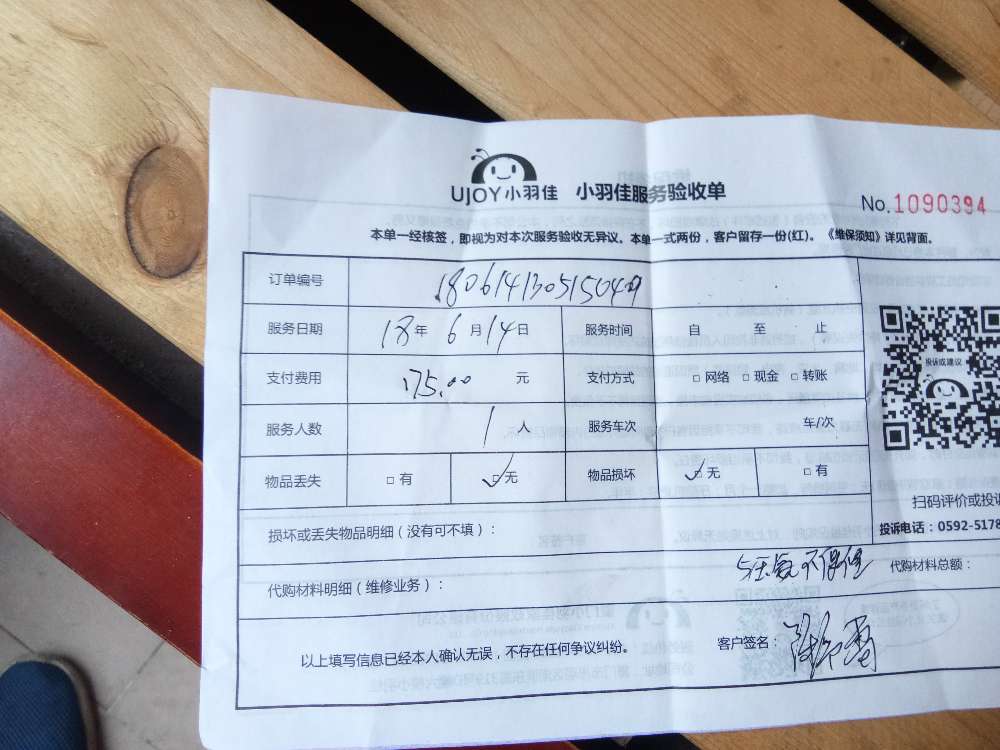 UJOY小羽佳 小羽佳服务验收单
No.1090394
本单一经核签，即视为对本次服务验收无异议。本单一式两份，客户留存一份(红)。《维保须知》详见背面。
订单编号 180614130515049
服务日期 18年 6月14日 服务时间 自 至 止
支付费用 175.00 元 支付方式 □网络 □现金 □转账
投诉或建议
服务人数 1人 服务车次 车/次
物品丢失 □有 ☑无 物品损坏 ☑无 □有
扫码评价或投诉
投诉电话：0592-5178
损坏或丢失物品明细（没有可不填）：
代购材料明细（维修业务）： 代购材料总额：
以上填写信息已经本人确认无误，不存在任何争议纠纷。 客户签名：